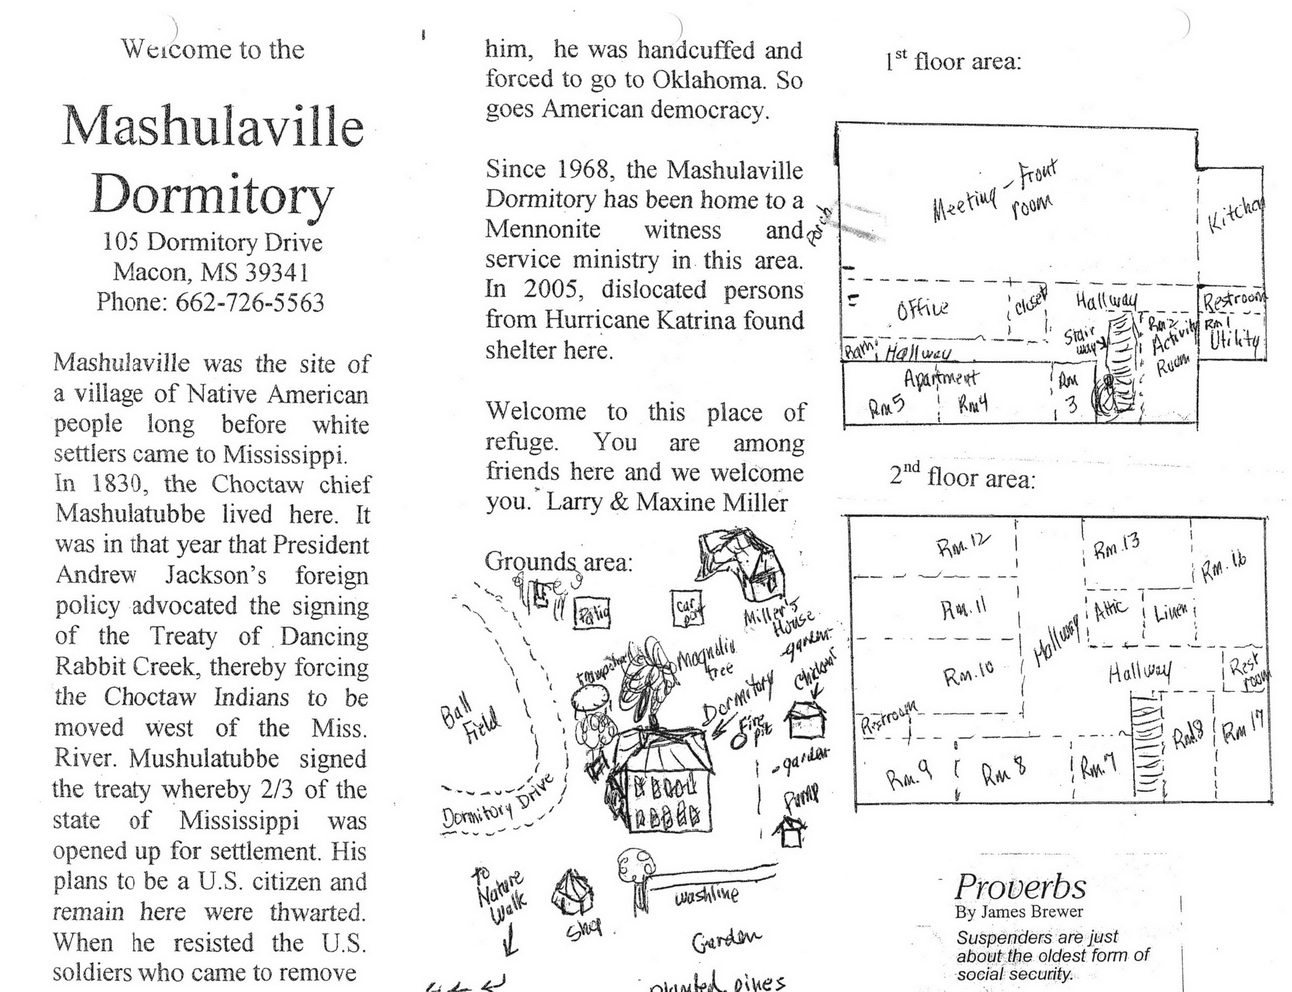 Welcome to the
Mashulaville
Dormitory
105 Dormitory Drive
Macon, MS 39341
Phone: 662-726-5563
Mashulaville was the site of
a village of Native American
people long before white
settlers came to Mississippi.
In 1830, the Choctaw chief
Mashulatubbe lived here. It
was in that year that President
Andrew Jackson's foreign
policy advocated the signing
of the Treaty of Dancing
Rabbit Creek, thereby forcing
the Choctaw Indians to be
moved west of the Miss.
River. Mushulatubbe signed
the treaty whereby 2/3 of the
state of Mississippi was
opened up for settlement. His
plans to be a U.S. citizen and
remain here were thwarted.
When he resisted the U.S.
soldiers who came to remove
him, he was handcuffed and
forced to go to Oklahoma. So
goes American democracy.
Since 1968, the Mashulaville
Dormitory has been home to a
Mennonite witness and
service ministry in this area.
In 2005, dislocated persons
from Hurricane Katrina found
shelter here.
Welcome to this place of
refuge. You are among
friends here and we welcome
you. Larry & Maxine Miller
Grounds area:
Patio
Car
port
Miller's
House
garden
Chickens
Trampoline
Magnolia
tree
Dormitory
Fire
pit
Ball
Field
garden
Pump
Dormitory Drive
to
Nature
Walk
Shop
washline
Garden
planted pines
1st floor area:
Porch
Meeting - Front
room
Kitchen
Office
Closet
Hallway
Restroom
Stair
way
Rm 2
Activity
Room
Rm 1
Utility
Bath
Hallway
Apartment
Rm 5
Rm 4
Rm
3
2nd floor area:
Rm. 12
Rm. 13
Rm. 16
Rm. 11
Attic
Linen
Hallway
Rm. 10
Hallway
Rest
room
Restroom
Rm. 9
Rm 8
Rm. 7
Rm 17
Proverbs
By James Brewer
Suspenders are just
about the oldest form of
social security.